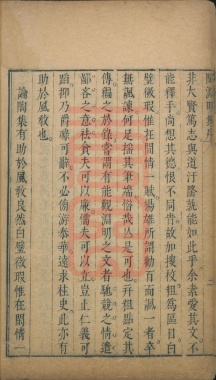 非大賢篤志與道汙隆孰能如此乎余素愛其文不
能釋手尚想其德恨不同時故加搜校粗爲區目白
璧微瑕惟在閒情一賦揚雄所謂勸百而諷一者卒
無諷諫何足搖其筆端惜哉亡是可也并粗點定其
傳編之于錄嘗謂有能觀淵明之文者馳競之情遣
鄙吝之意祛貪夫可以廉懦夫可以立豈止仁義可
蹈抑乃爵祿可辭不必傍游泰華遠求柱史此亦有
助於風教也
論陶集有助於風教良然白璧微瑕惟在閒情一